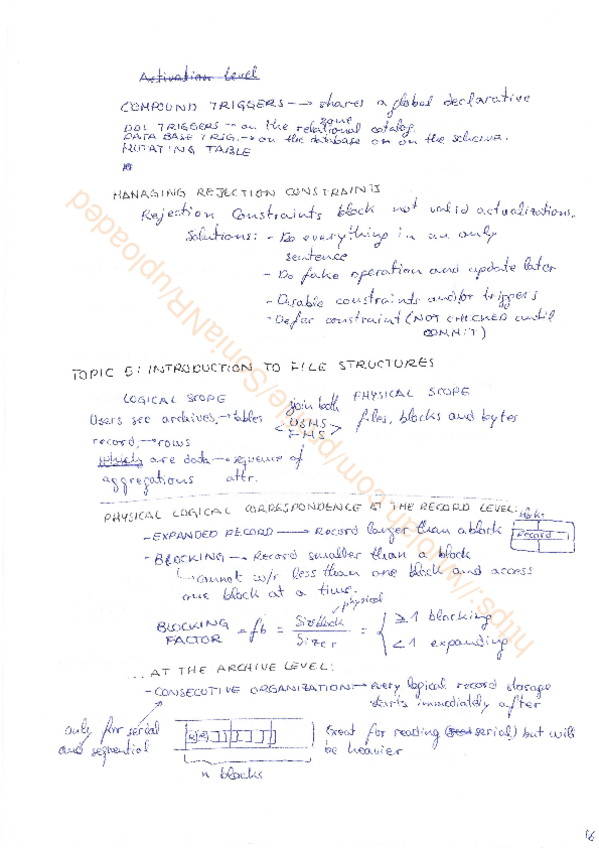 Activation Level
COMPOUND TRIGGERS → shares a global declarative
zone
DDL TRIGGERS → on the relational catalog.
DATA BASE TRIG. → on the database or on the schema.
MUTATING TABLE
MANAGING REJECTION CONSTRAINTS
Rejection Constraints block not valid actualizations.
Solutions: - Do everything in an only
sentence
- Do fake operation and update later
- Disable constraints and/or triggers
- Defer constraint (NOT CHECKED until
COMMIT)
TOPIC 5: INTRODUCTION TO FILE STRUCTURES
LOGICAL SCOPE join both PHYSICAL SCOPE
Users see archives, → tables < DSMS > files, blocks and bytes
FMS
record, → rows
which are data → sequence of
aggregations attr.
PHYSICAL LOGICAL CORRESPONDENCE AT THE RECORD LEVEL:
- EXPANDED RECORD → Record larger than a block
Record
- BLOCKING → Record smaller than a block
↳ cannot w/r less than one block and access
one block at a time.
physical
BLOCKING FACTOR = fb = Sizeblock / Sizer = { ≥1 blocking
<1 expanding
... AT THE ARCHIVE LEVEL:
- CONSECUTIVE ORGANIZATION: → every logical record storage
starts immediately after
only for serial
and sequential
Great for reading (serial) but will
be heavier
n blocks
16
https://wolah.com/profile/SoniaNR/uploaded